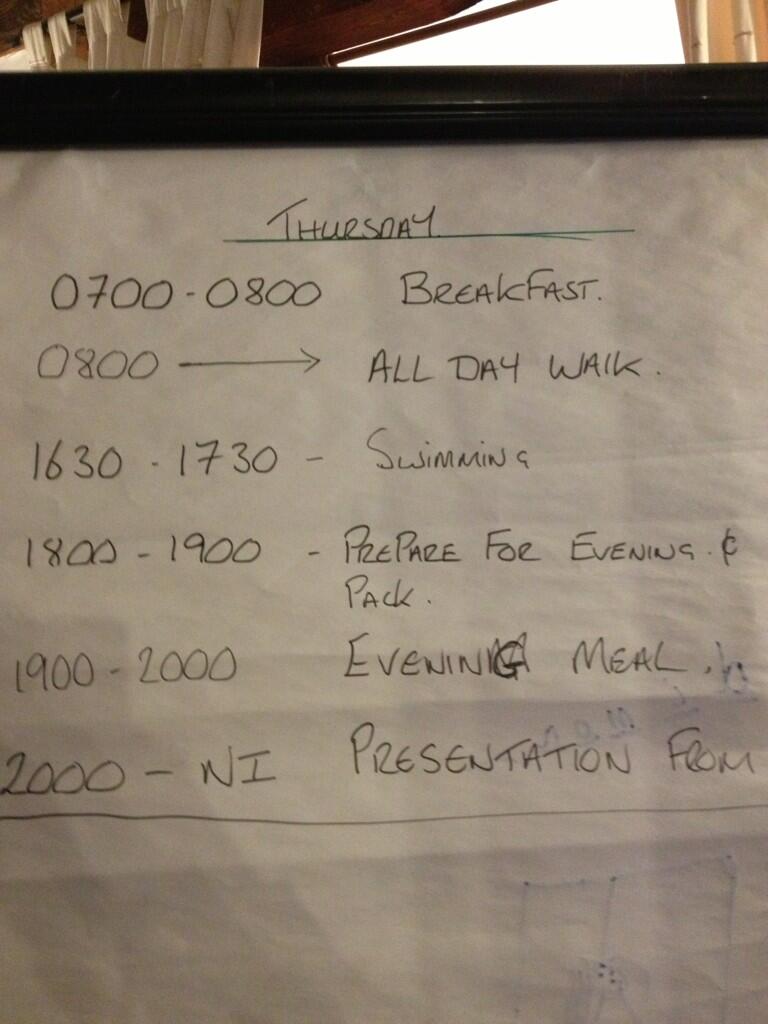 THURSDAY
0700 - 0800 BREAKFAST.
0800 → ALL DAY WALK.
1630 - 1730 - SWIMMING
1800 - 1900 - PREPARE FOR EVENING. &
PACK.
1900 - 2000 EVENING MEAL.
2000 - NI PRESENTATION FROM